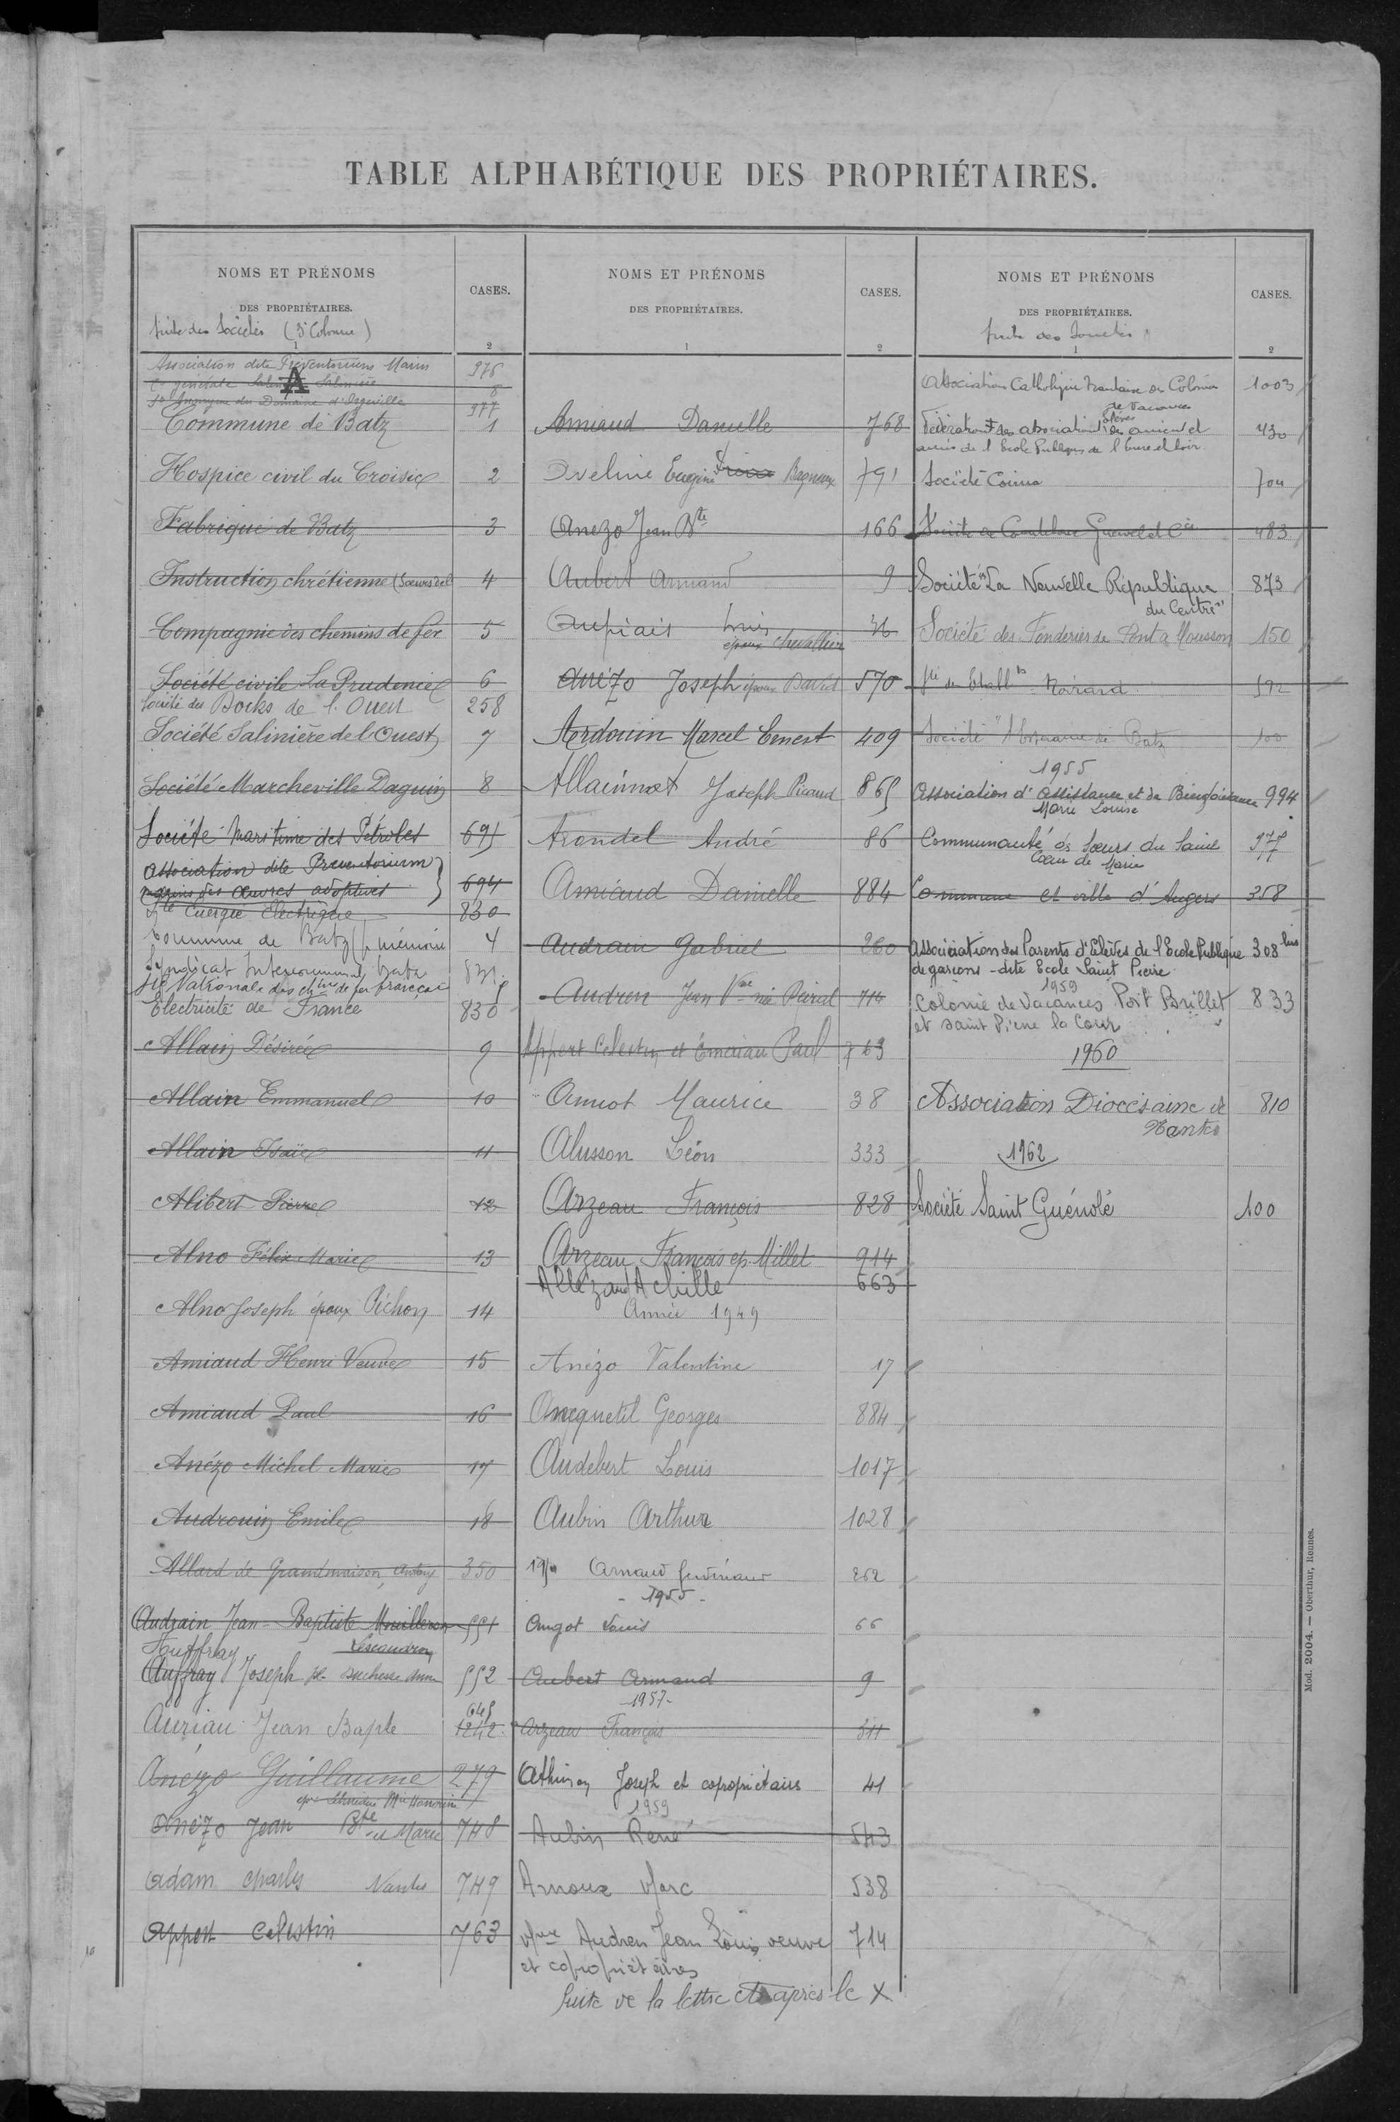 TABLE ALPHABÉTIQUE DES PROPRIÉTAIRES.
NOMS ET PRÉNOMS
DES PROPRIÉTAIRES.
CASES.
suite des Sociétés (3e Colonne)
1
2
Association dite Préventorium Marin 976
Cie générale Salinière 8
A
Sté Anonyme du Domaine d' 977
Commune de Batz 1
Hospice civil du Croisic 2
Fabrique de Batz 3
Instruction chrétienne (Sœurs de l' 4
Compagnie des chemins de fer 5
Société civile La Prudence 6
Société des Docks de l'Ouest 258
Société Salinière de l'Ouest 7
Société Marcheville Daguin 8
Société Maritime des Pétroles 695
Association dite Preventorium
des œuvres adoptives 694
Sté Energie Electrique 830
Commune de Batz (p. mémoire 4
Syndicat Intercommunal Batz 831
Sté Nationale des chins de fer français 5
Electricité de France 830
Allain Désiré 9
Allain Emmanuel 10
Allain Isaïe 11
Alibert Pierre 12
Alno Félix Marie 13
Alno Joseph époux Pichon 14
Amiaud Henri Veuve 15
Amiaud Paul 16
Anézo Michel Marie 17
Audrouin Emile 18
Allard de Grandmaison 350
Audrain Jean-Baptiste Mouilleron 551
Lescoudron
Auffray Joseph 552
645
Auriau Jean Bapte 1242
Anézo Guillaume 279
Anézo Jean Bte et Marie 748
Adam Charles Nantes 749
Appert Celestin 763
NOMS ET PRÉNOMS
DES PROPRIÉTAIRES.
CASES.
1
2
Amiaud Danielle 768
Aveline Eugène Bagneux 791
Anezo Jean Bte 166
Aubert Armand 9
Aupiais Louis
époux Chevallier 36
Anézo Joseph époux David 570
Ardouin Marcel Ernest 409
Allainmat Joseph Picaud 865
Arondel André 86
Amiaud Danielle 884
Audrain Gabriel 260
Audren Jean Vve née 714
Appert Celestin et Paul 763
Amiot Maurice 38
Alusson Léon 333
Arzeau François 828
Arzeau François ep. Millet 914
Allézard Achille 663
Année 1949
Anézo Valentine 17
Ancquetil Georges 884
Audebert Louis 1017
Aubin Arthur 1028
Arnaud 262
- 1955 -
Angot Louis 66
Aubert Armand 9
- 1957 -
Arzeau François 311
Joseph et copropriétaires 41
1959
Aubin René 543
Arnoux Marc 538
Vve Audren Jean Louis veuve 714
et copropriétaires
Suite de la lettre A après le X
NOMS ET PRÉNOMS
DES PROPRIÉTAIRES.
CASES.
suite des Sociétés
1
2
Association Catholique Nantaise des Colonies 1003
de Vacances
Fédération des associations des anciens élèves et 430
amis de l'Ecole Publique de l'Eure et Loir
Société Coima 704
483
Société "La Nouvelle République 873
du Centre"
Société des Fonderies de Pont à Mousson 150
Sté des Etablts Moirard 592
Société de Batz 100
1955
Association d'Assistance et de Bienfaisance 994
Marie Louise
Communauté des Sœurs du Saint 977
Cœur de Marie
Commune et ville d'Angers 358
Association des Parents d'Elèves de l'Ecole Publique 308 bis
de garçons - dite Ecole Saint Pierre
1959
Colonie de Vacances Port Brillet 833
et Saint Pierre la Cour
1960
Association Diocésaine de 810
Nantes
1962
Société Saint Guénolé 100
Mod. 2004. — Oberthur, Rennes.